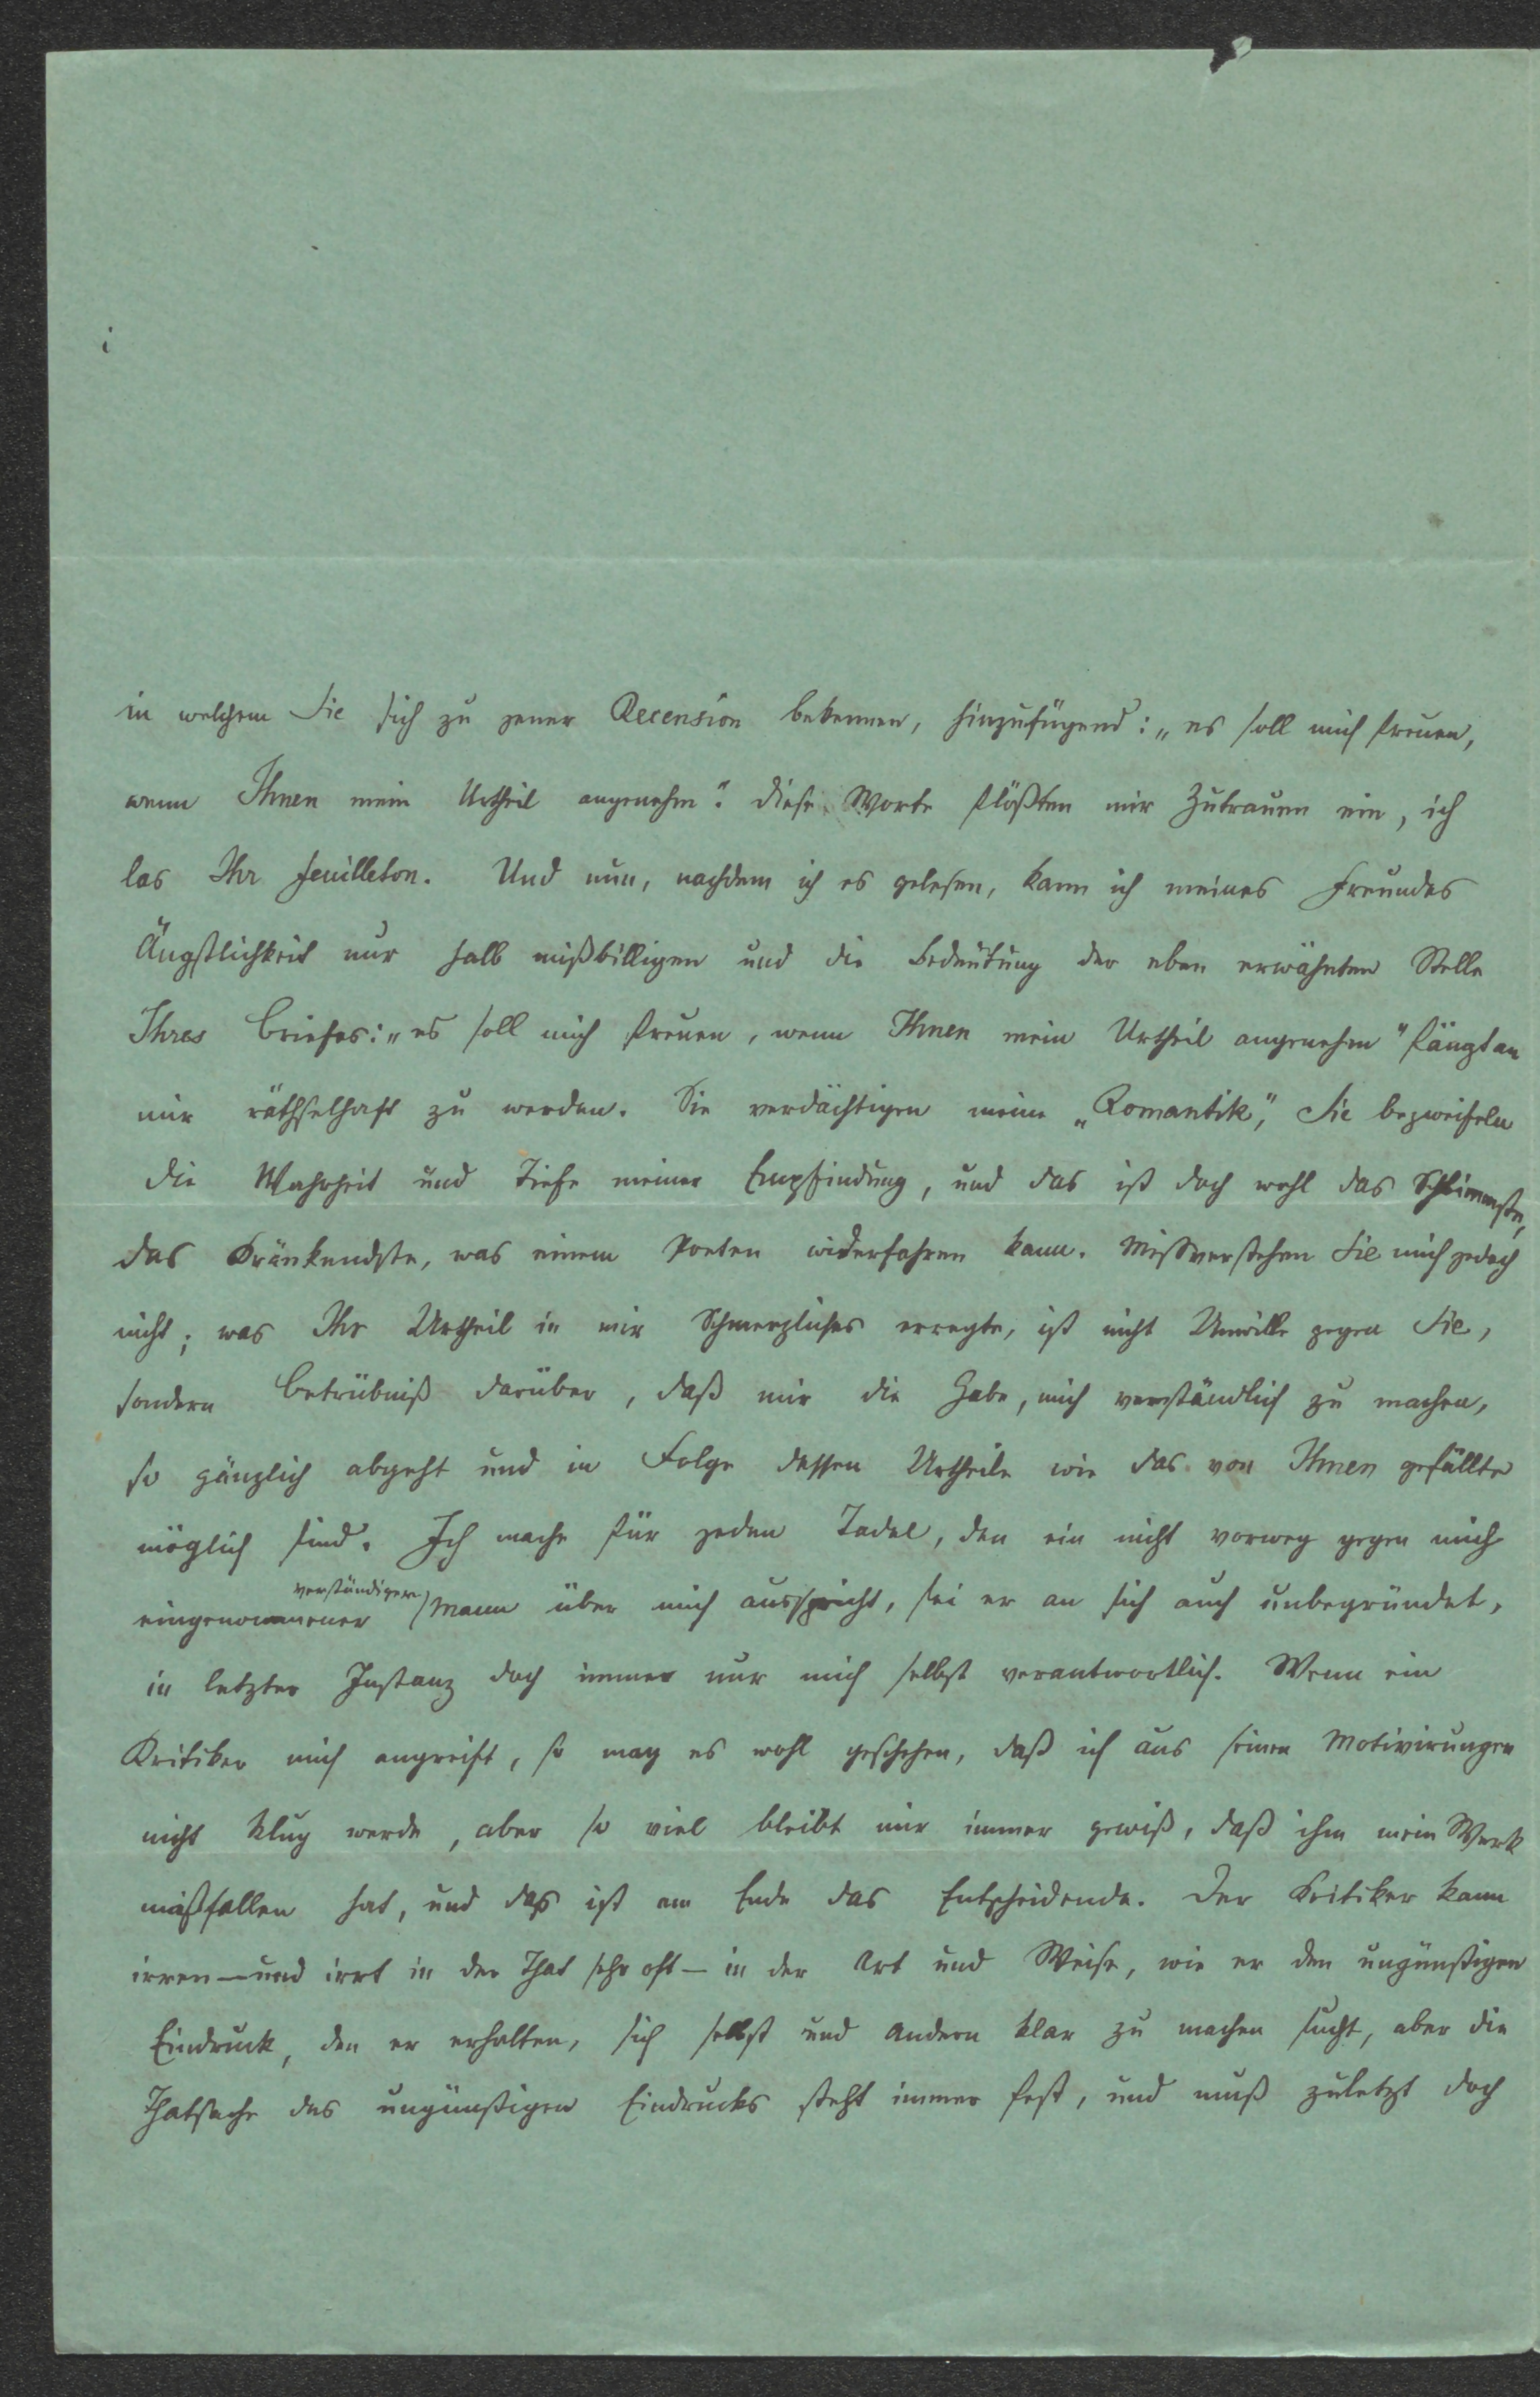 in welchem Sie sich zu jener Recension bekennen, hinzufügend: „es soll mich freuen,
wenn Ihnen mein Urtheil angenehm“. Diese Worte flößten mir Zutrauen ein, ich
las Ihr Feuilleton. Und nun, nachdem ich es gelesen, kann ich meines Freundes
Ängstlichkeit nur halb mißbilligen und die Bedeutung der eben erwähnten Stelle
Ihres Briefes: „es soll mich freuen, wenn Ihnen mein Urtheil angenehm“ fängt an
mir räthselhaft zu werden. Sie verdächtigen meine „Romantik“, Sie bezweifeln
die Wahrheit und Tiefe meiner Empfindung, und das ist doch wohl das Schlimmste,
das Kränkendste, was einem Poeten widerfahren kann. Missverstehen Sie mich jedoch
nicht; was Ihr Urtheil in mir Schmerzliches erregte, ist nicht Unwille gegen Sie,
sondern Betrübniß darüber, daß mir die Gabe, mich verständlich zu machen,
so gänzlich abgeht und in Folge dessen Urtheile wie das von Ihnen gefällte
möglich sind. Ich mache für jeden Tadel, den ein nicht vorweg gegen mich
verständiger
eingenommener Mann über mich ausspricht, sei er an sich auch unbegründet,
in letzter Instanz doch immer nur mich selbst verantwortlich. Wenn ein
Kritiker mich angreift, so mag es wohl geschehen, daß ich aus seinen Motivirungen
nicht klug werde, aber so viel bleibt mir immer gewiß, daß ihm mein Werk
mißfallen hat, und das ist am Ende das Entscheidende. Der Kritiker kann
irren – und irrt in der That sehr oft – in der Art und Weise, wie er den ungünstigen
Eindruck, den er erhalten, sich selbst und Andern klar zu machen sucht, aber die
Thatsache des ungünstigen Eindrucks steht immer fest, und muß zuletzt doch